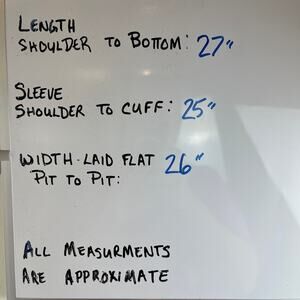 LENGTH
SHOULDER TO BOTTOM: 27"
SLEEVE
SHOULDER TO CUFF: 25"
WIDTH-LAID FLAT 26"
PIT TO PIT:
ALL MEASURMENTS
ARE APPROXIMATE